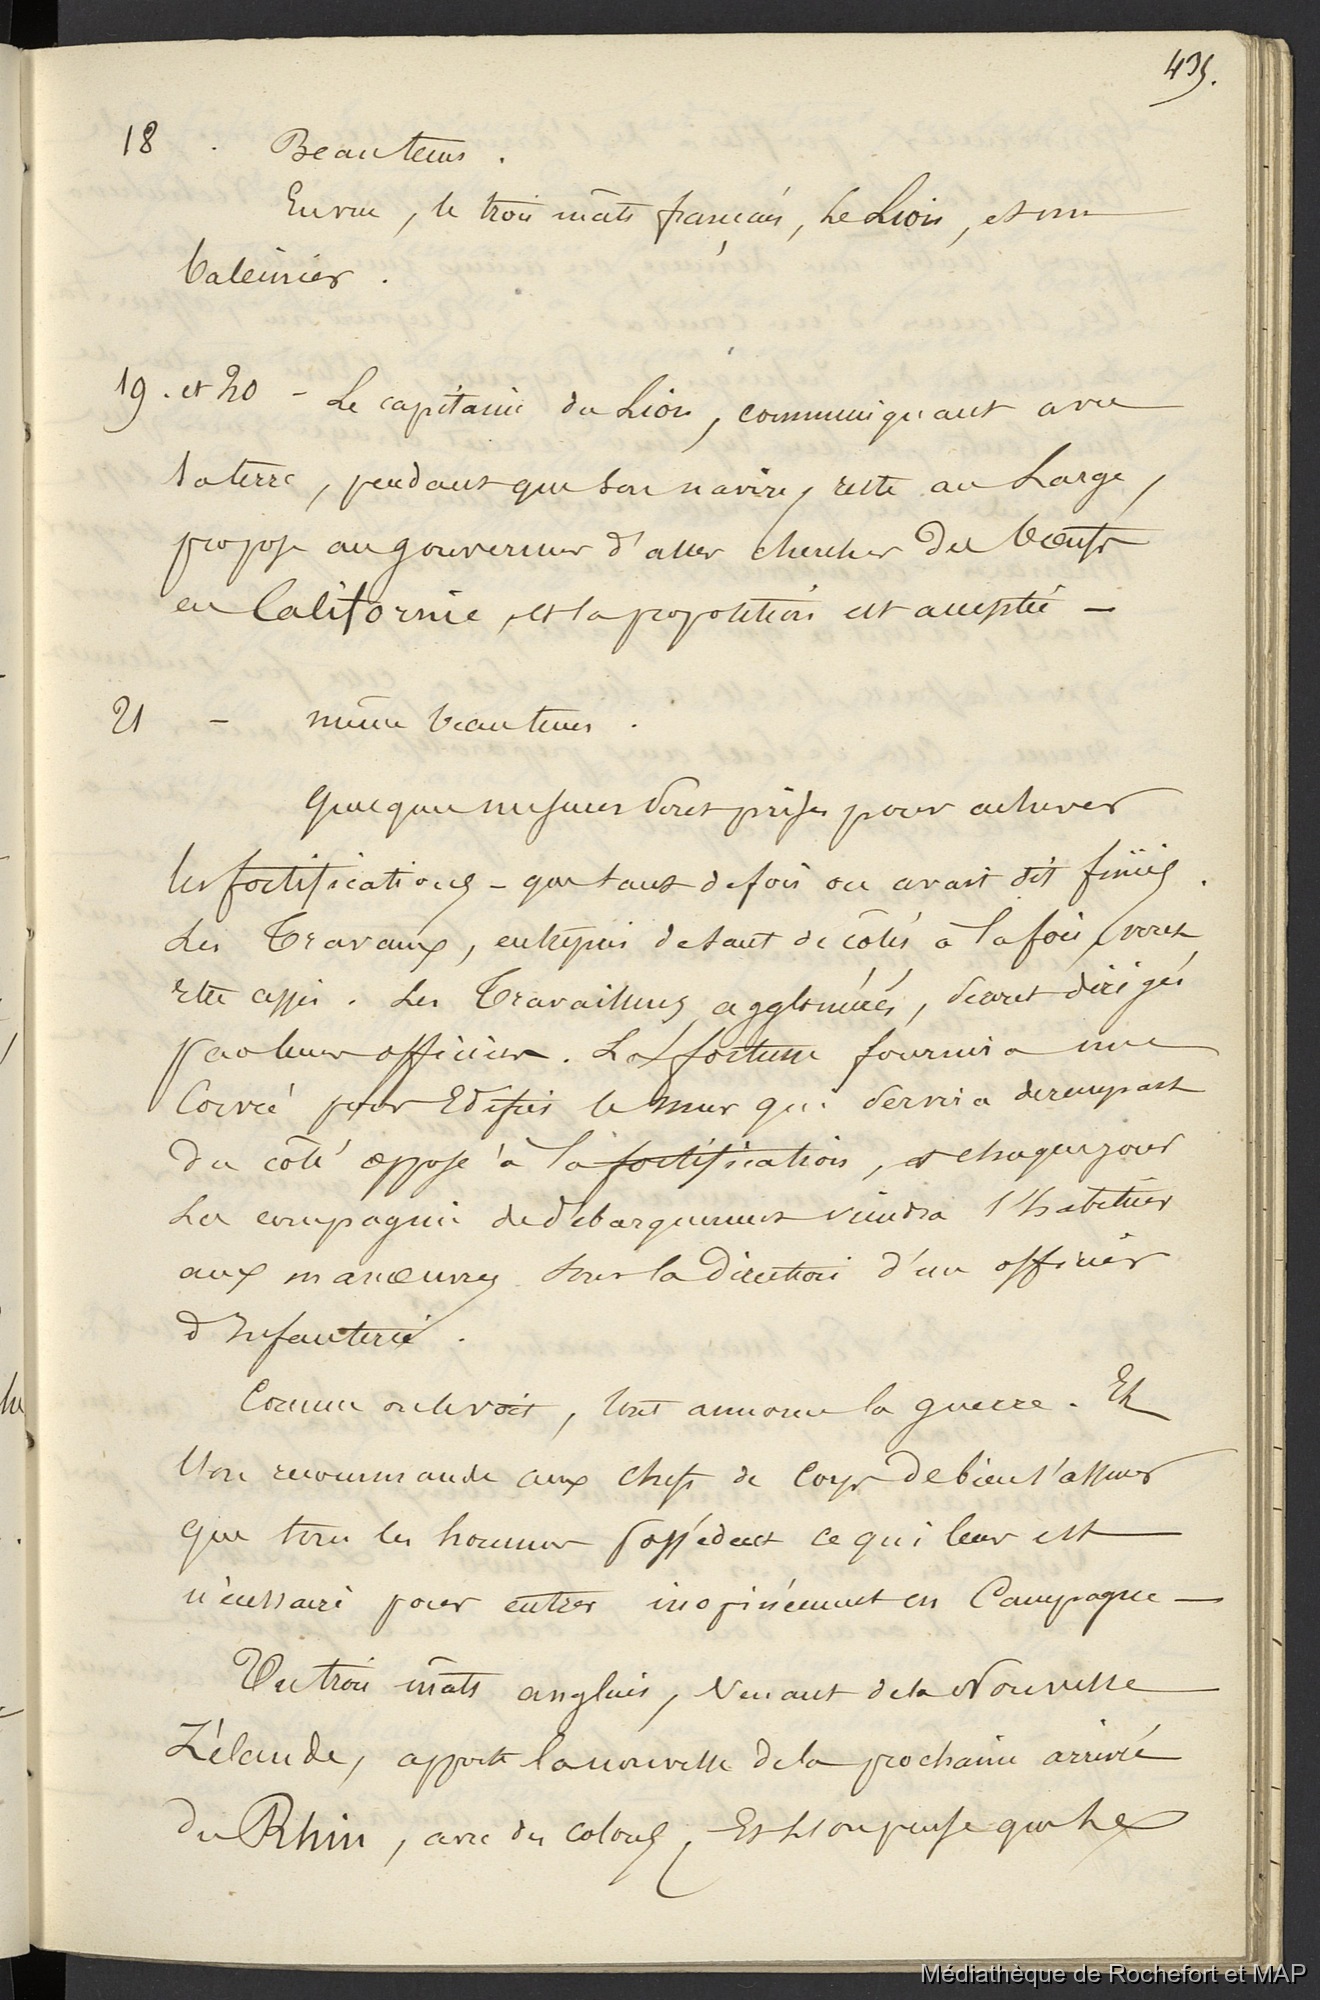 435.
18 . Beau tems .
En vue, le trois mâts français, Le Lion, et un
baleinier .
19 . et 20 - Le capitaine du Lion, communiquant avec
la terre, pendant que son navire, reste au Large,
propose au gouverneur d'aller chercher des bœufs
en Californie, et la proposition est acceptée -
21 - même beau tems .
Quelques mesures sont prises pour achever
les fortifications - que tant de fois on avait dit finies .
Les Travaux, entrepris de tant de côtés à la fois, vont
être . Les Travailleurs agglomérés, seront dirigés
par leurs officiers . La fortune fournira une
Corvée pour Edifier le mur qui servira de rempart
du côté opposé à la fortification, et chaque jour
La compagnie de débarquement viendra s'habituer
aux manœuvres sous la Direction d'un officier
d'Infanterie .
Comme on le voit, tout annonce la guerre . Et
l'on recommande aux chefs de Corps de bien s'assurer
que tous les hommes possèdent ce qui leur est
nécessaire pour entrer inopinément en Campagne -
Un trois mâts anglais, Venant de la Nouvelle
Zélande, apporte la nouvelle de la prochaine arrivée
du Rhin, avec des colons, Et l'on pense que Les
Médiathèque de Rochefort et MAP